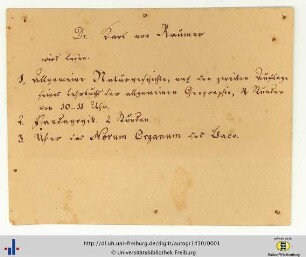 Dr. Karl von Raumer
wird lesen:
1. Allgemeine Naturgeschichte, nach der zweiten Auflage
seines Lehrbuchs der allgemeinen Geographie, 4 Stunden
von 10-11 Uhr.
2. Paedagogik. 2 Stunden.
3. Ueber das Novum Organum des Baco.
http://dl.ub.uni-freiburg.de/diglit/autogr1450/0001
© Universitätsbibliothek Freiburg